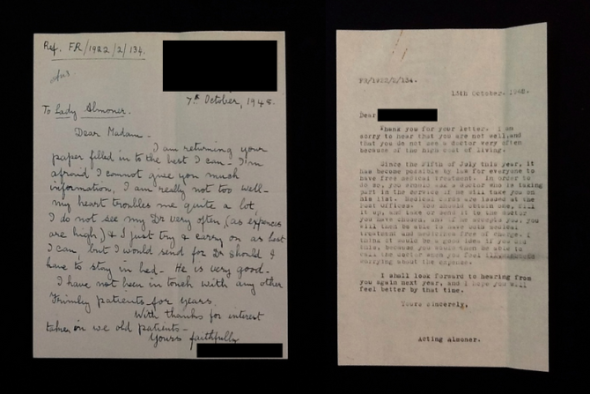 Ref. FR/1922/2/134.
7th October, 1948.
To Lady Almoner.
Dear Madam.
I am returning your
paper filled in to the best I can - I'm
afraid I cannot give you much
information. I am really not too well -
my heart troubles me quite a lot,
I do not see my Dr very often (as expenses
are high) & I just try & carry on as best
I can, but I would send for Dr should I
have to stay in bed - He is very good.
I have not been in touch with any other
Frimley patients for years.
With thanks for interest
taken in we old patients -
Yours faithfully
FR/1922/2/134.
13th October, 1948.
Dear
Thank you for your letter. I am
sorry to hear that you are not well, and
that you do not see a doctor very often
because of the high cost of living.
Since the Fifth of July this year, it
has become possible by law for everyone to
have free medical treatment. In order to
do so, you should ask a doctor who is taking
part in the service if he will take you on
his list. Medical cards are issued at the
Post Offices. You should obtain one, fill
it up, and
you have chosen, and if he accepts you, you
will then be able to have both medical
treatment and medicine free of charge. I
think it would be a good idea if you did
this, because you would then be able to
call the doctor when you feel ill without
worrying about the expense.
I shall look forward to hearing from
you again next year, and I hope you will
feel better by that time.
Yours sincerely,
Acting Almoner.